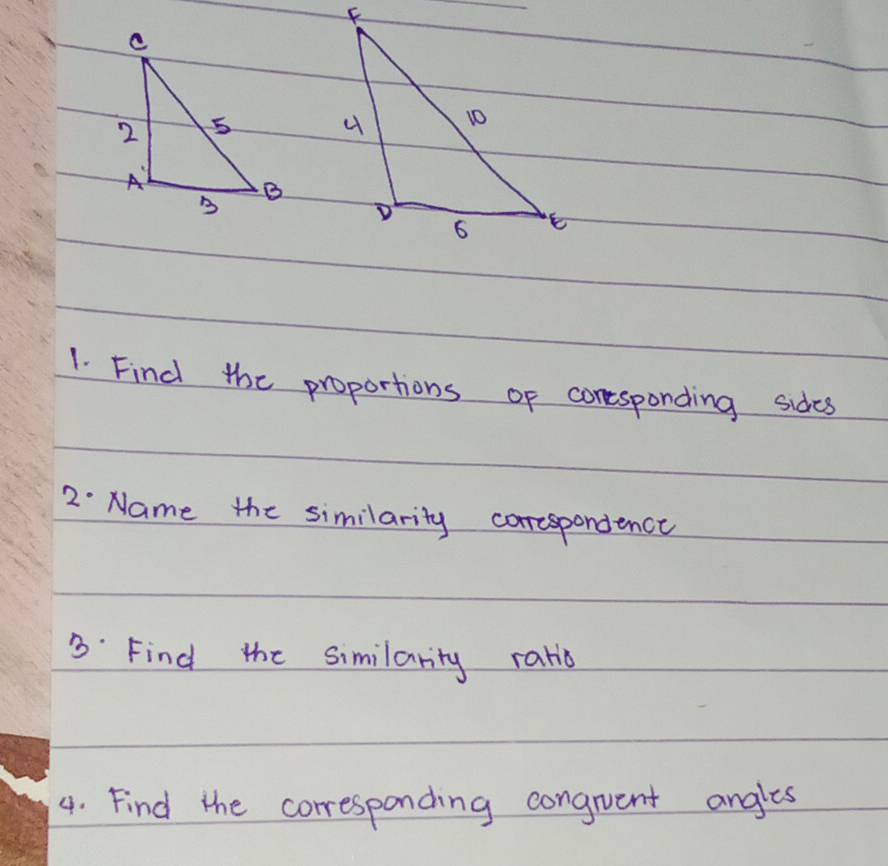 F
C
2
5
4
10
A
B
3
D
E
6
1. Find the proportions of corresponding sides
2. Name the similarity correspondence
3. Find the similarity ratio
4. Find the corresponding congruent angles